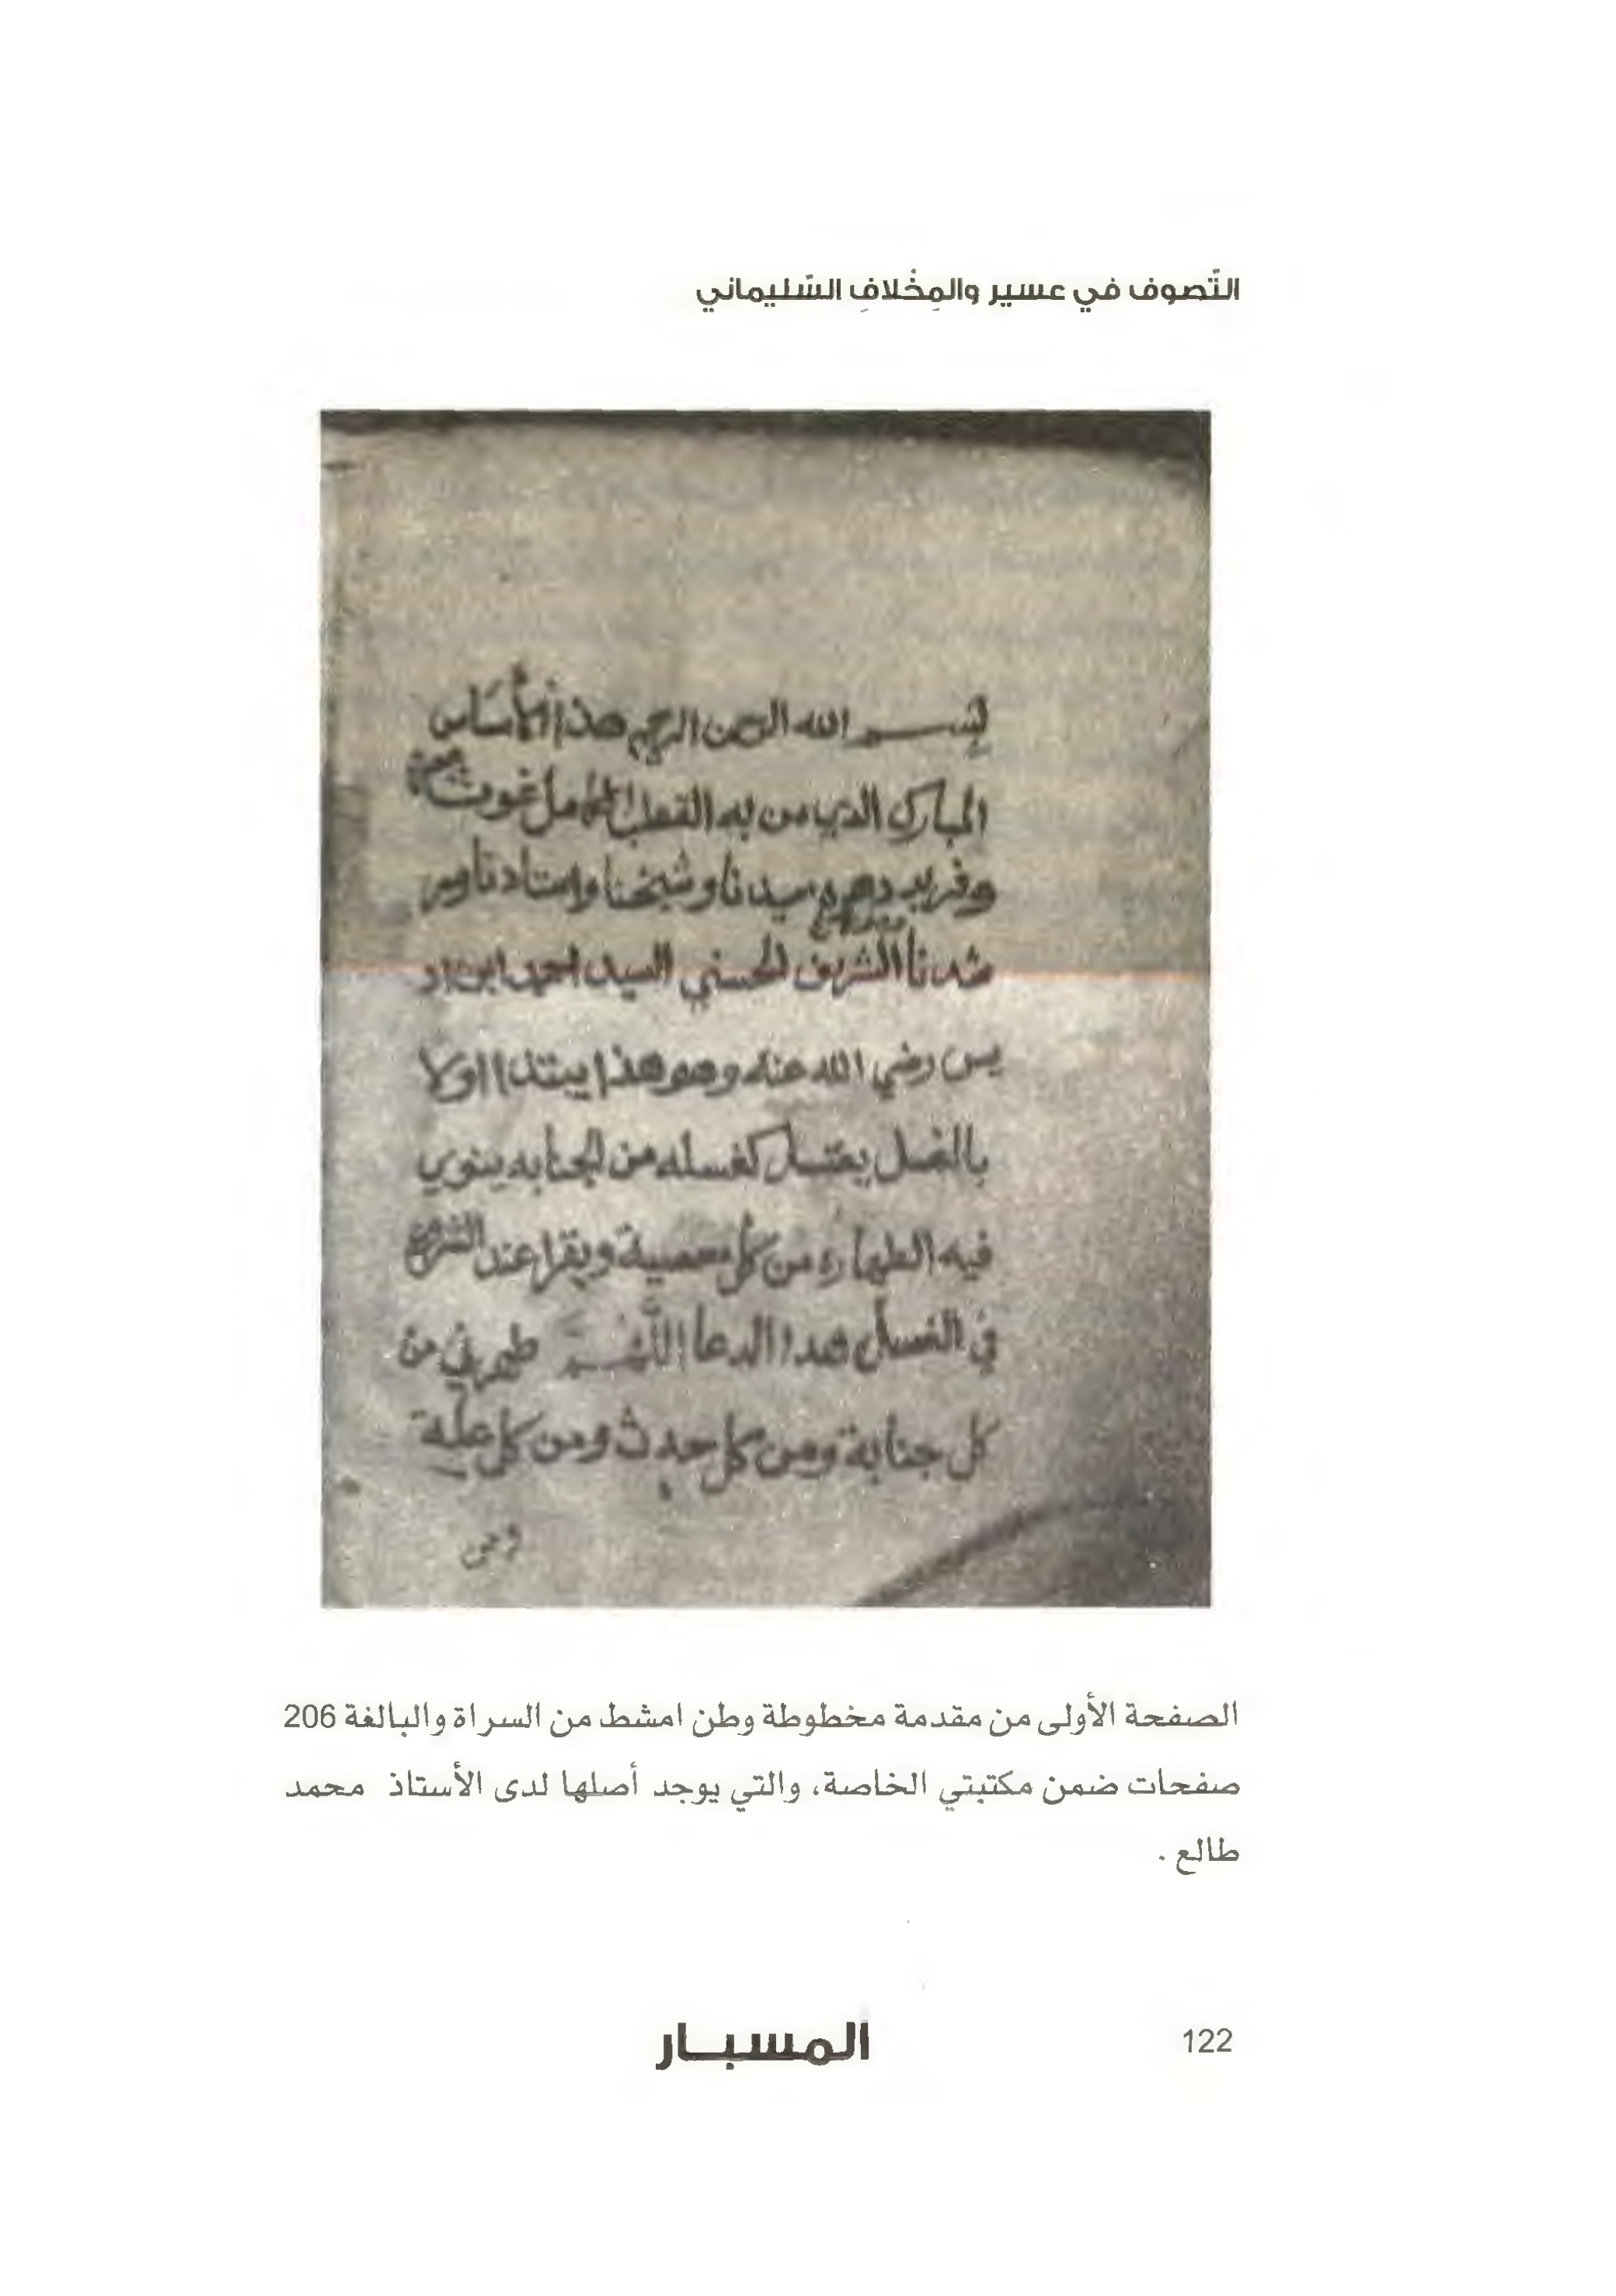 التّصوف في عسير والمِخْلافِ السّليماني
بسم الله الرحمن الرحيم هذا الأساس
المبارك الذي من به القطب الكامل غوث
وفريد دهره سيدنا وشيخنا واستاذنا ومر
شدنا الشريف الحسني السيد احمد ابن اد
يس رضي الله عنه وهو هذا يبتدا اولا
بالغسل يغتسل كغسله من الجنابه ينوي
فيه الطهاره من كل معصية ويقرا عند الشروع
في الغسل هدا الدعا اللهم طهرني من
كل جنابة ومن كل حدث ومن كل علة
الصفحة الأولى من مقدمة مخطوطة وطن امشط من السراة والبالغة 206
صفحات ضمن مكتبتي الخاصة، والتي يوجد أصلها لدى الأستاذ محمد
طالع .
المسبار
122